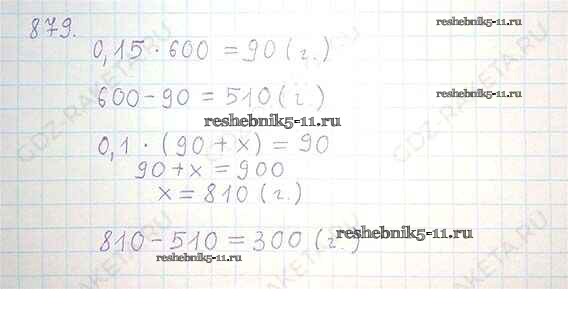 879.
0,15 · 600 = 90 (г.)
reshebnik5-11.ru
600 - 90 = 510 (г.)
reshebnik5-11.ru
reshebnik5-11.ru
0,1 · (90 + x) = 90
90 + x = 900
x = 810 (г.)
810 - 510 = 300 (г.)
reshebnik5-11.ru
reshebnik5-11.ru
GDZ-RAKETA.RU
GDZ-RAKETA.RU